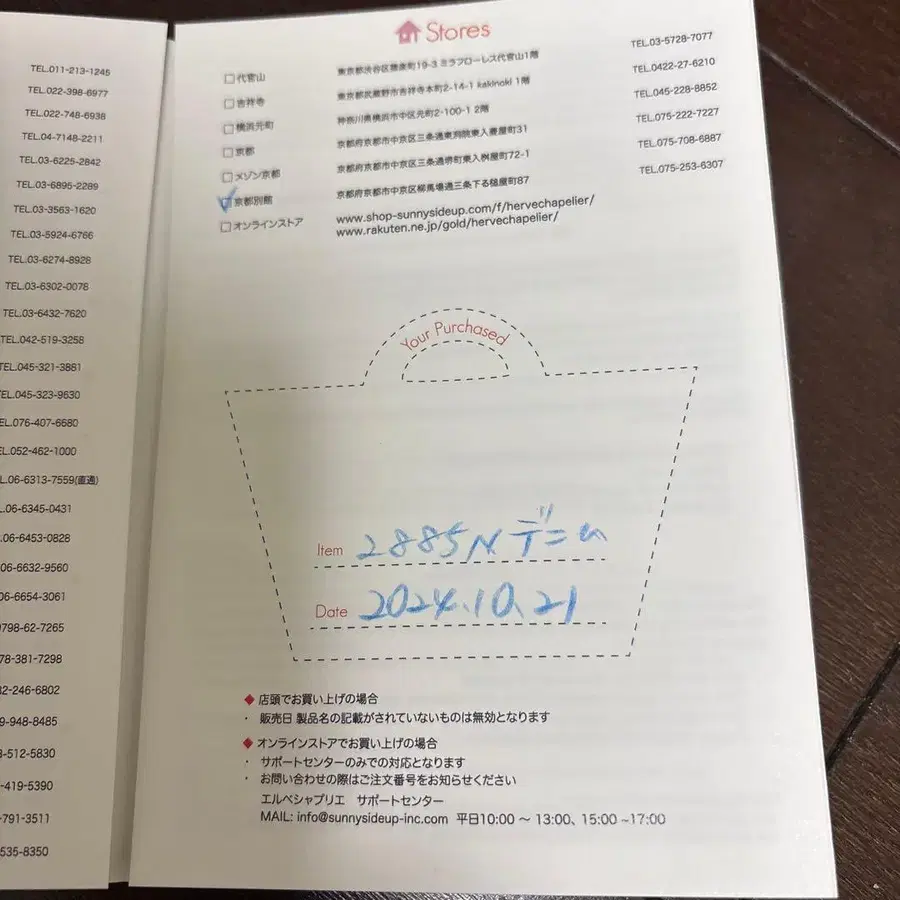 TEL.011-213-1245
TEL.022-398-6977
TEL.022-748-6938
TEL.04-7148-2211
TEL.03-6225-2842
TEL.03-6895-2289
TEL.03-3563-1620
TEL.03-5924-6766
TEL.03-6274-8928
TEL.03-6302-0078
TEL.03-6432-7620
TEL.042-519-3258
TEL.045-321-3881
TEL.045-323-9630
EL.076-407-6680
EL.052-462-1000
L.06-6313-7559(直通)
.06-6345-0431
.06-6453-0828
06-6632-9560
06-6654-3061
0798-62-7265
78-381-7298
82-246-6802
9-948-8485
3-512-5830
-419-5390
-791-3511
535-8350
Stores
代官山 東京都渋谷区猿楽町19-3 ミラフローレス代官山1階 TEL.03-5728-7077
吉祥寺 東京都武蔵野市吉祥寺本町2-14-1 kakinoki 1階 TEL.0422-27-6210
横浜元町 神奈川県横浜市中区元町2-100-1 2階 TEL.045-228-8852
京都 京都府京都市中京区三条通東洞院東入菱屋町31 TEL.075-222-7227
メゾン京都 京都府京都市中京区三条通堺町東入桝屋町72-1 TEL.075-708-6887
京都別館 京都府京都市中京区柳馬場通三条下る槌屋町87 TEL.075-253-6307
オンラインストア www.shop-sunnysideup.com/f/hervechapelier/
www.rakuten.ne.jp/gold/hervechapelier/
Your Purchased
Item 2885N デニム
Date 2024.10.21
◆ 店頭でお買い上げの場合
・ 販売日 製品名の記載がされていないものは無効となります
◆ オンラインストアでお買い上げの場合
・ サポートセンターのみでの対応となります
・ お問い合わせの際はご注文番号をお知らせください
エルベシャプリエ サポートセンター
MAIL: info@sunnysideup-inc.com 平日10:00 ～ 13:00、15:00 ~17:00